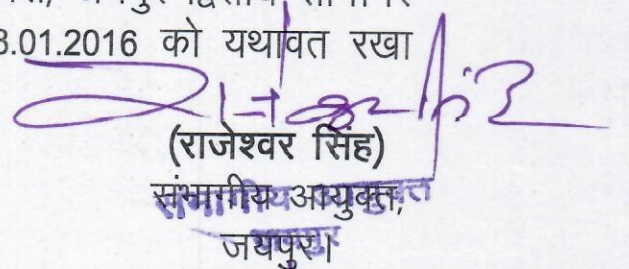 जयपुर द्वितीय
.01.2016 को यथावत रखा
(राजेश्वर सिंह)
संभागीय आयुक्त,
जयपुर।